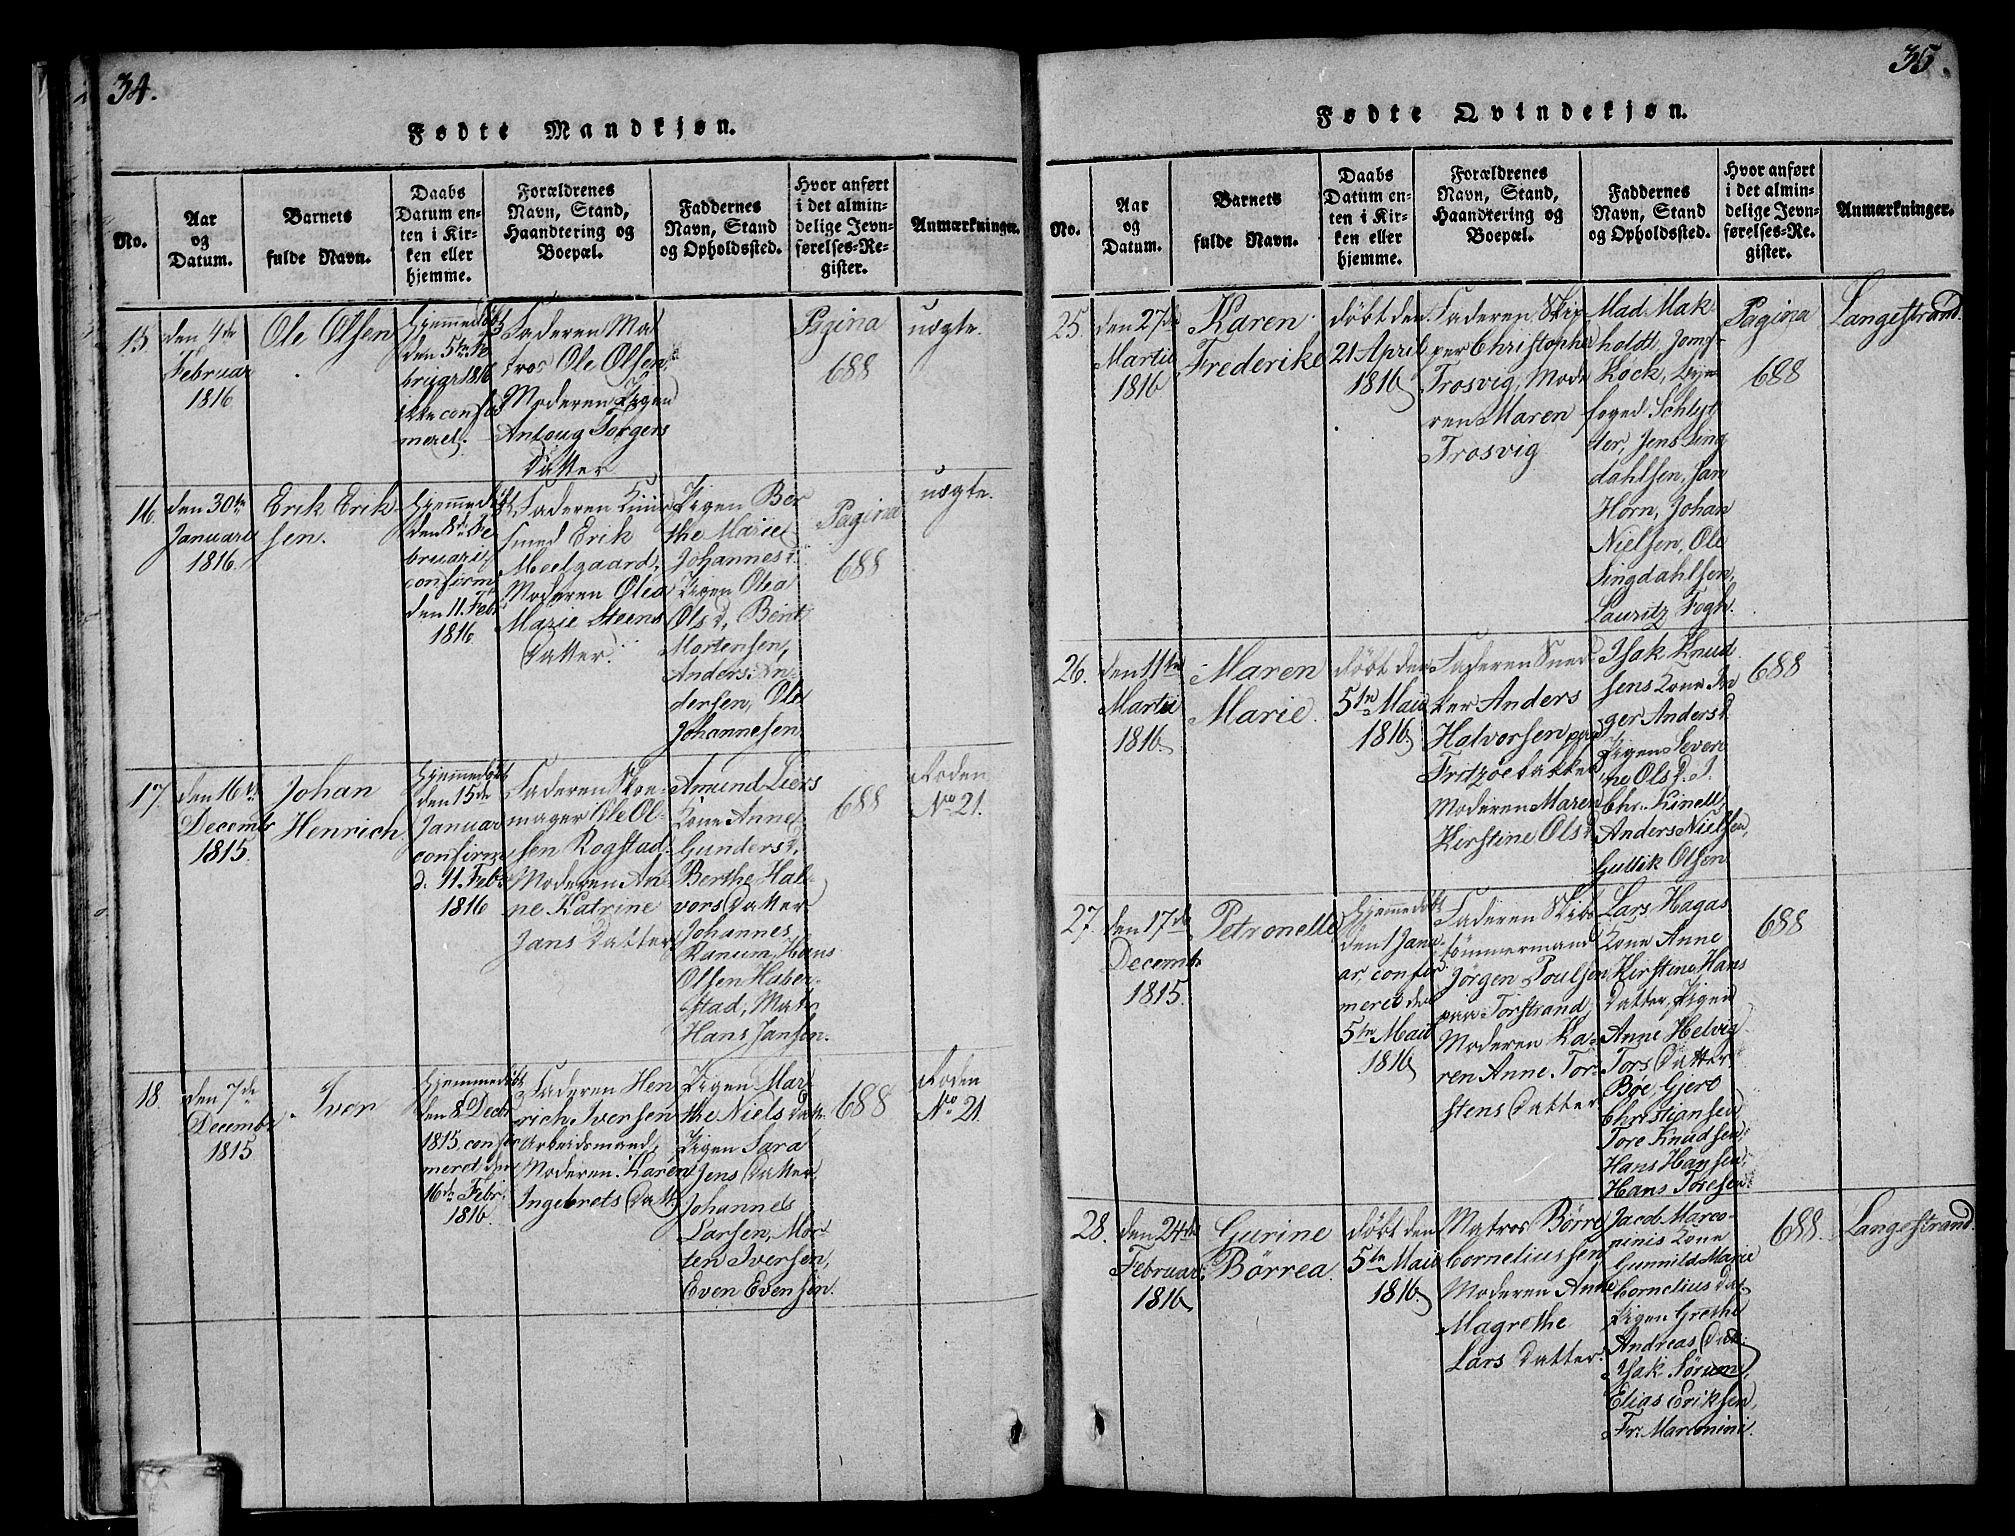 34.
Fødte Mandkjøn.
No.
Aar
og
Datum.
Barnets
fulde Navn.
Daabs
Datum en-
ten i Kir-
ken eller
hjemme.
Forældrenes
Navn, Stand,
Haandtering og
Boepæl.
Faddernes
Navn, Stand
og Opholdssted.
Hvor anført
i det almin-
delige Jevn-
førelses-Re-
gister.
Anmærkninger.
15.
den 4de
Februar
1816
Ole Olsen
Hjemmedøbt
den 5te Fe
bruar 1816
ikke confir
meret.
Faderen Ma
tros Ole Olsen,
Moderen Pigen
Torgers
Datter
Pagina
688
uægte.
16.
den 30te
Januari
1816.
Erik Erik-
sen.
Hjemmedøbt
den 8de Fe
bruari,
confirm:
den 11. Febr
1816
Faderen
smed Erik
Meelgaard,
Moderen Olea
Marie Steens
Datter.
Pigen Ber
the Marie
Johannes D.
Pigen Olea
Ols D. Bent
Mortensen,
Anders An-
dersen, Ole
Johannesen
Pagina
688
uægte.
17
den 16de
Decembr
1815.
Johan
Henrich
Hjemmedøbt
den 15de
Januar
confirm
d. 11. Febr
1816
Faderen Skoe-
mager Ole Ol-
sen Rogstad,
Moderen An-
ne Katrine
Jans Datter
Amund Liers
Kone Anne
Gunders D.
Berthe Hal-
vors Datter
Johannes
Ranum, Hans
Olsen Haber-
stad, Mat.
Hans Jansen.
688
Roden
No 21.
18.
den 7de
Decembr
1815
Iver
Hjemmedøbt
den 8 Decbr
1815, confir
meret den
16de Febr:
1816.
Faderen Hen
rich Iversen
Arbeidsmand,
Moderen Karen
Ingebrets Datt
Pigen Mar
the Niels Datt.
Pigen Sara
Jens Datter
Johannes
Larsen, Mor
ten Iversen,
Even Evensen.
688
Roden
No 21
35.
Fødte Qvindekjøn.
No.
Aar
og
Datum.
Barnets
fulde Navn.
Daabs
Datum en-
ten i Kir-
ken eller
hjemme.
Forældrenes
Navn, Stand,
Haandtering og
Boepæl.
Faddernes
Navn, Stand
og Opholdssted.
Hvor anført
i det almin-
delige Jevn-
førelses-Re-
gister.
Anmærkninger.
25.
den 27de
Martii
1816
Karen
Frederike
døbt den
21 April
1816
Faderen Skip
per Christopher
Trosvig, Mode
ren Maren
Trosvig
Mad. Mak-
holdt, Jomf
Kock, Bye-
foged Schlyt
ter, Jens Sing
dahlsen, Jan
Horn, Johan
Nielsen, Ole
Singdahlsen,
Lauritz Fogh.
Pagina
688
Langestrand.
26.
den 11te
Martii
1816
Maren
Marie.
døbt den
5te Maii
1816
Faderen Sned
ker Anders
Halvorsen paa
Fritzøebakke
Moderen Maren
Kirstine Ols D.
Isak Knud
sens Kone In
ger Anders D.
Pigen Severi
ne Ols D. J.
Chr. Kinell,
Anders Nielsen,
Gullik Olsen
688
27.
den 17de
Decembr
1815.
Petronelle
Hjemmedøbt
den 1 Janu
ar, confir
meret den
5te Maii
1816
Faderen Skibs
tømmermand
Jørgen Poulsen
paa Torstrand,
Moderen Ka-
ren Anne Tor-
stens Datter
Lars Hagas
Kone Anne
Kirstine Hans
Datter, Pigen
Anne Helvig
Tors Datter
Boe Gjero
Christiansen,
Tore Knudsen,
Hans Hansen,
Hans Toresen
688
28.
den 24de
Februar:
1816
Gurine
Børrea.
døbt den
5te Maii
1816.
Matros Børre
Corneliussen
Moderen Anne
Magrethe
Lars Datter.
Jacob Marco-
ninis Kone
Gunnild Marie
Cornelius Dat.
Pigen Grethe
Andreas Datt.
Isak Sørum,
Elias Eriksen,
Fr. Marconini.
688.
Langestrand.